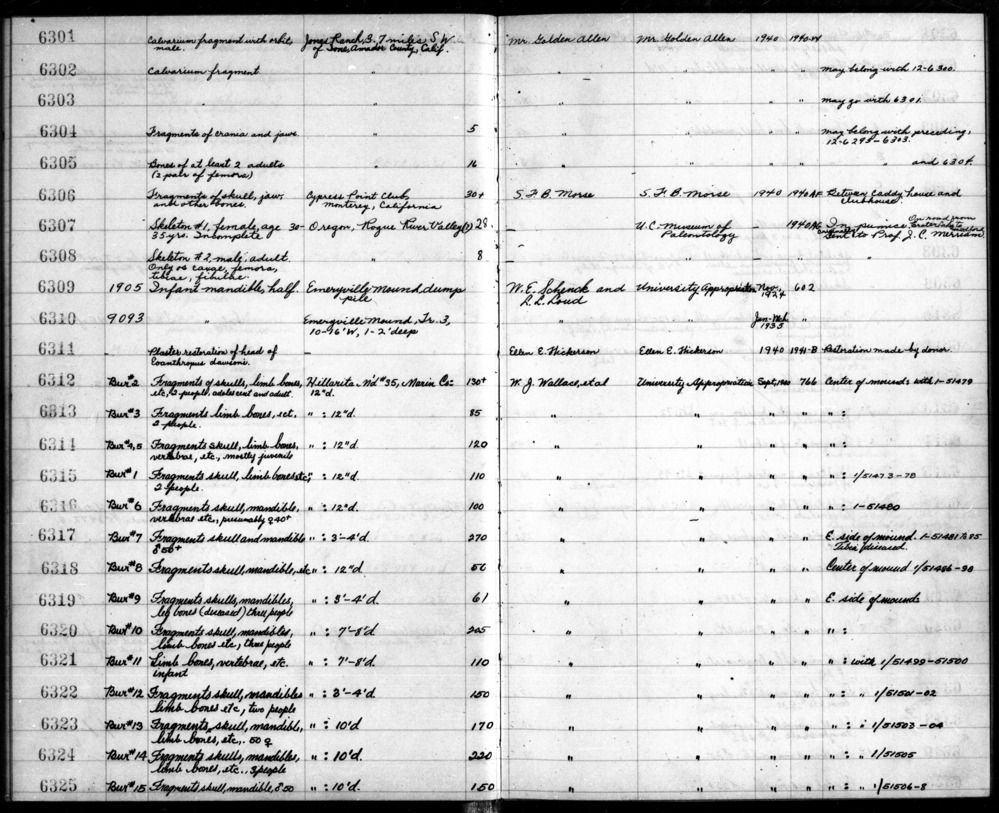 6301 Calvarium fragment with orbit, Jones Ranch, 3.7 miles S.W. Mr. Golden Allen Mr. Golden Allen 1940 1940-W
male. of Ione, Amador County, Calif.
6302 Calvarium fragment " " " " " may belong with 12-6300.
6303 " " " " " may go with 6301.
6304 Fragments of crania and jaws. " 5 " " " " may belong with preceding,
12-6293-6303.
6305 Bones of at least 2 adults " 16 " " " " " and 6304.
(2 pair of femora)
6306 Fragments of skull, jaw, Cypress Point Club, 30+ S. F. B. Morse S. F. B. Morse 1940 1940 AF Between Caddy house and
and other bones. Monterey, California clubhouse.
6307 Skeleton #1, female, age 30- Oregon, Rogue River Valley(?) 28 — U.C. Museum of — 1940 In pumice On road from
35 yrs. Incomplete Paleontology Sent to Prof. J. C. Merriam.
6308 Skeleton #2, male, adult. " 8 " " "
Only os coxae, femora,
tibiae, fibulae.
6309 1905 Infant mandible, half. Emeryville Mound, dump W. E. Schenck and University Appropriation Nov. 602
pile L. L. Loud 1924
6310 9093 " Emeryville Mound, Tr. 3, " " Jan-Mch "
10-96'W, 1-2' deep 1935
6311 — Plaster restoration of head of — Ellen E. Hickerson Ellen E. Hickerson 1940 1941-B Restoration made by donor.
Eoanthropus dawsoni.
6312 Bur #2 Fragments of skulls, limb bones, Hillarita M'd #35, Marin Co: 130+ W. J. Wallace, et al University Appropriation Sept, 766 Center of mound: with 1-51479
etc, 2 people, adolescent and adult. 12"d.
6313 Bur #3 Fragments limb bones, ect. " : 12"d. 85 " " " " " :
2 people.
6314 Bur #4,5 Fragments skull, limb bones, " : 12"d. 120 " " " " " :
vertebrae, etc., mostly juvenile
6315 Bur #1 Fragments skull, limb bones etc; " : 12"d. 110 " " " " " : 1/51473-78
2 people.
6316 Bur #6 Fragments skull, mandible, " : 12"d. 100 " " " " " : 1-51480
vertebrae etc., presumably ♀ 40+
6317 Bur #7 Fragments skull and mandible " : 3'-4'd. 270 " " " " E. side of mound. 1-51481 to 85
♂ 50+ Tibia diseased.
6318 Bur #8 Fragments skull, mandible, etc " : 12"d 50 " " " " Center of mound 1/51486-98
6319 Bur #9 Fragments skulls, mandibles, " : 3'-4'd. 61 " " " " E. side of mound:
leg bones (diseased) three people
6320 Bur #10 Fragments skull, mandibles, " : 7'-8'd. 205 " " " " " :
limb bones etc, three people
6321 Bur #11 Limb bones, vertebrae, etc. " : 7'-8'd. 110 " " " " " : with 1/51499-51500
infant
6322 Bur #12 Fragments skull, mandibles " : 3'-4'd. 150 " " " " " : " 1/51501-02
limb bones etc, two people
6323 Bur #13 Fragments skull, mandible, " : 10'd. 170 " " " " " : " 1/51503-04
limb bones, etc,. 50 ♀
6324 Bur #14 Fragments skulls, mandibles, " : 10'd. 220 " " " " " : " 1/51505
limb bones, etc., 3 people
6325 Bur #15 Fragments skull, mandible, ♂ 50 " : 10'd. 150 " " " " " : " 1/51506-8